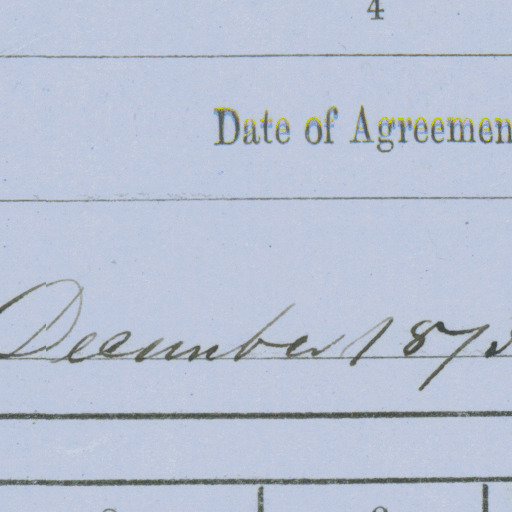 4
Date of Agreemen
December 187